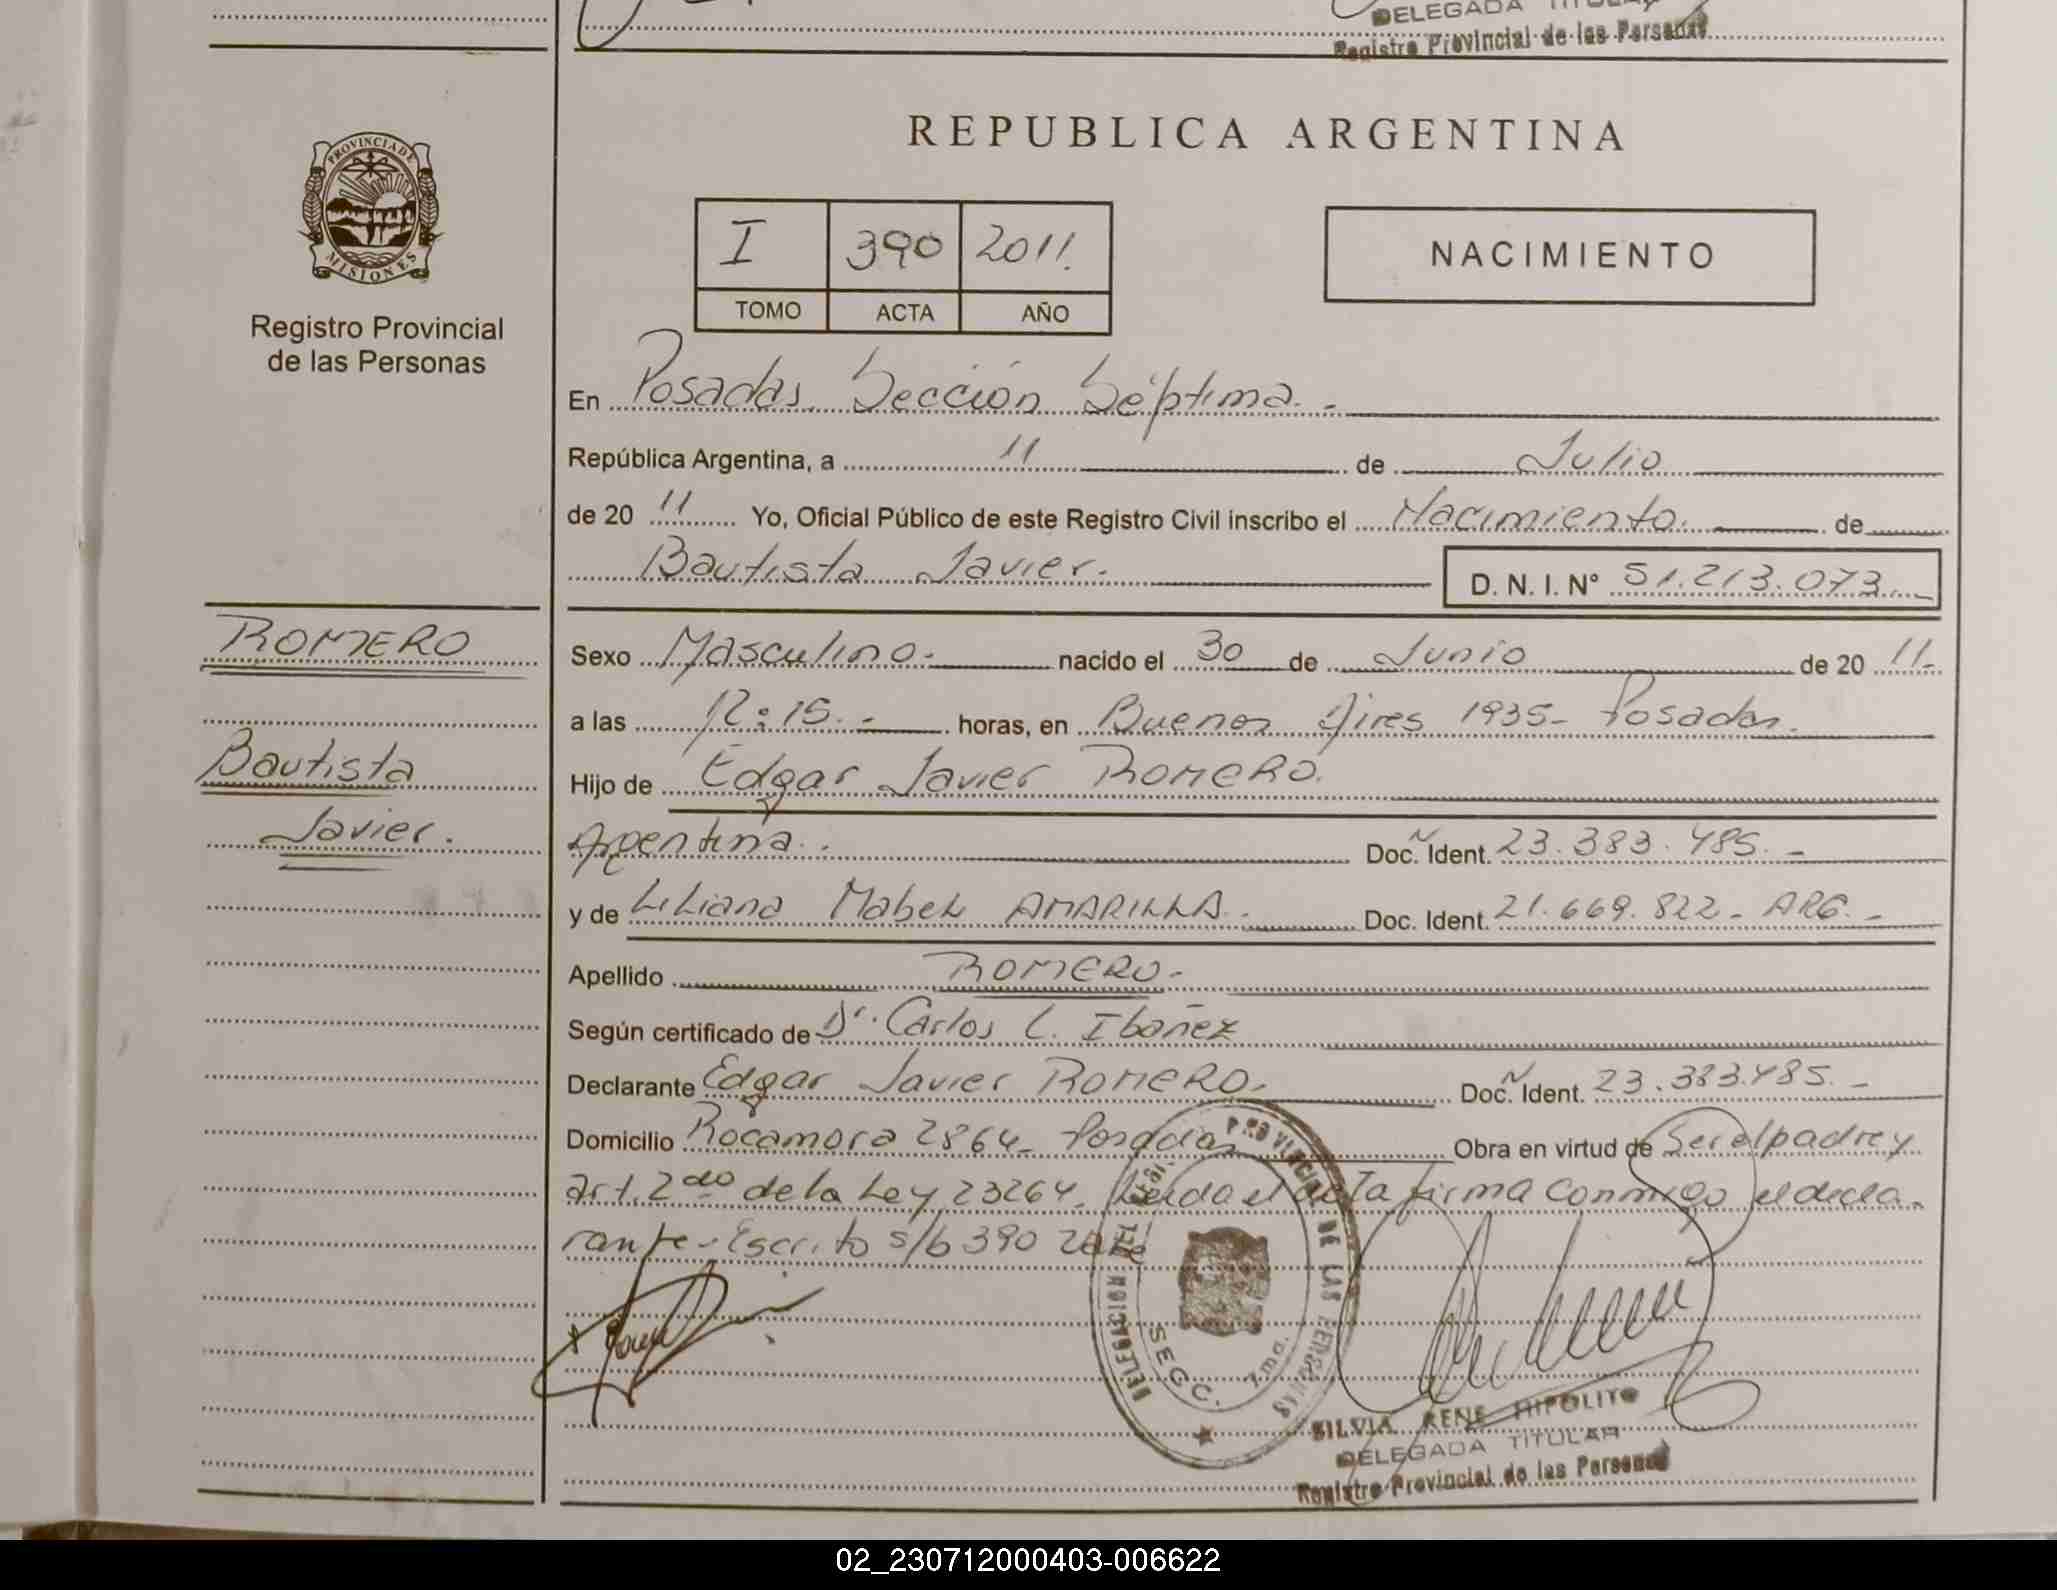 DELEGADA TITULAR
Registro Provincial de las Personas
PROVINCIA DE
MISIONES
Registro Provincial
de las Personas
REPUBLICA ARGENTINA
I 390 2011.
TOMO ACTA AÑO
NACIMIENTO
En Posadas Sección Séptima.-
República Argentina, a 11 de Julio
de 20 11 Yo, Oficial Público de este Registro Civil inscribo el Nacimiento. de
Bautista Javier. D. N. I. N° 51.213.073
ROMERO
Bautista
Javier.
Sexo Masculino.- nacido el 30 de Junio de 20 11.-
a las 12:15.- horas, en Buenos Aires 1935- Posadas.
Hijo de Edgar Javier ROMERO.
Argentina.- Doc. Ident. 23.383.485.-
y de Liliana Mabel AMARILLA.- Doc. Ident. 21.669.822- ARG.-
Apellido ROMERO.-
Según certificado de Dr. Carlos L. Ibañez
Declarante Edgar Javier ROMERO. Doc. Ident. 23.383.485.-
Domicilio Rocamora 2864- Posadas Obra en virtud de Ser el padre y
art. 2do de la Ley 23264. Leida el acta firma conmigo el decla-
rante- Escrito s/b 390 Vale
DELEGACION DEL REGI. PROVINCIAL DE LAS PERSONAS
SECC. 7ma.
SILVIA RENE HIPOLITO
DELEGADA TITULAR
Registro Provincial de las Personas
02_230712000403-006622